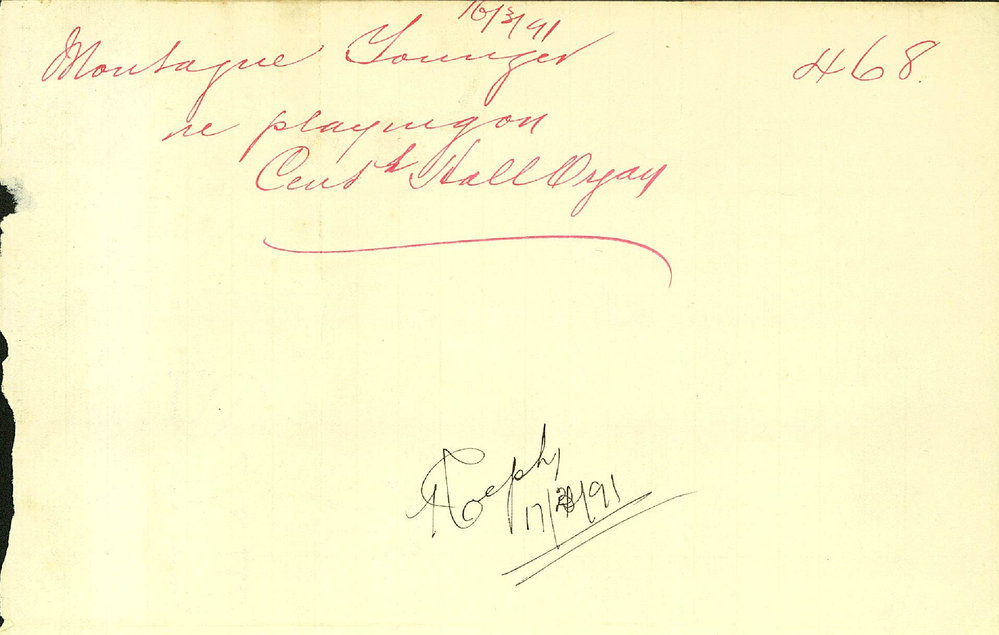 16/3/91
Montague Younger 468.
re playing on
Cent^l Hall Organ
Reply
17/3/91